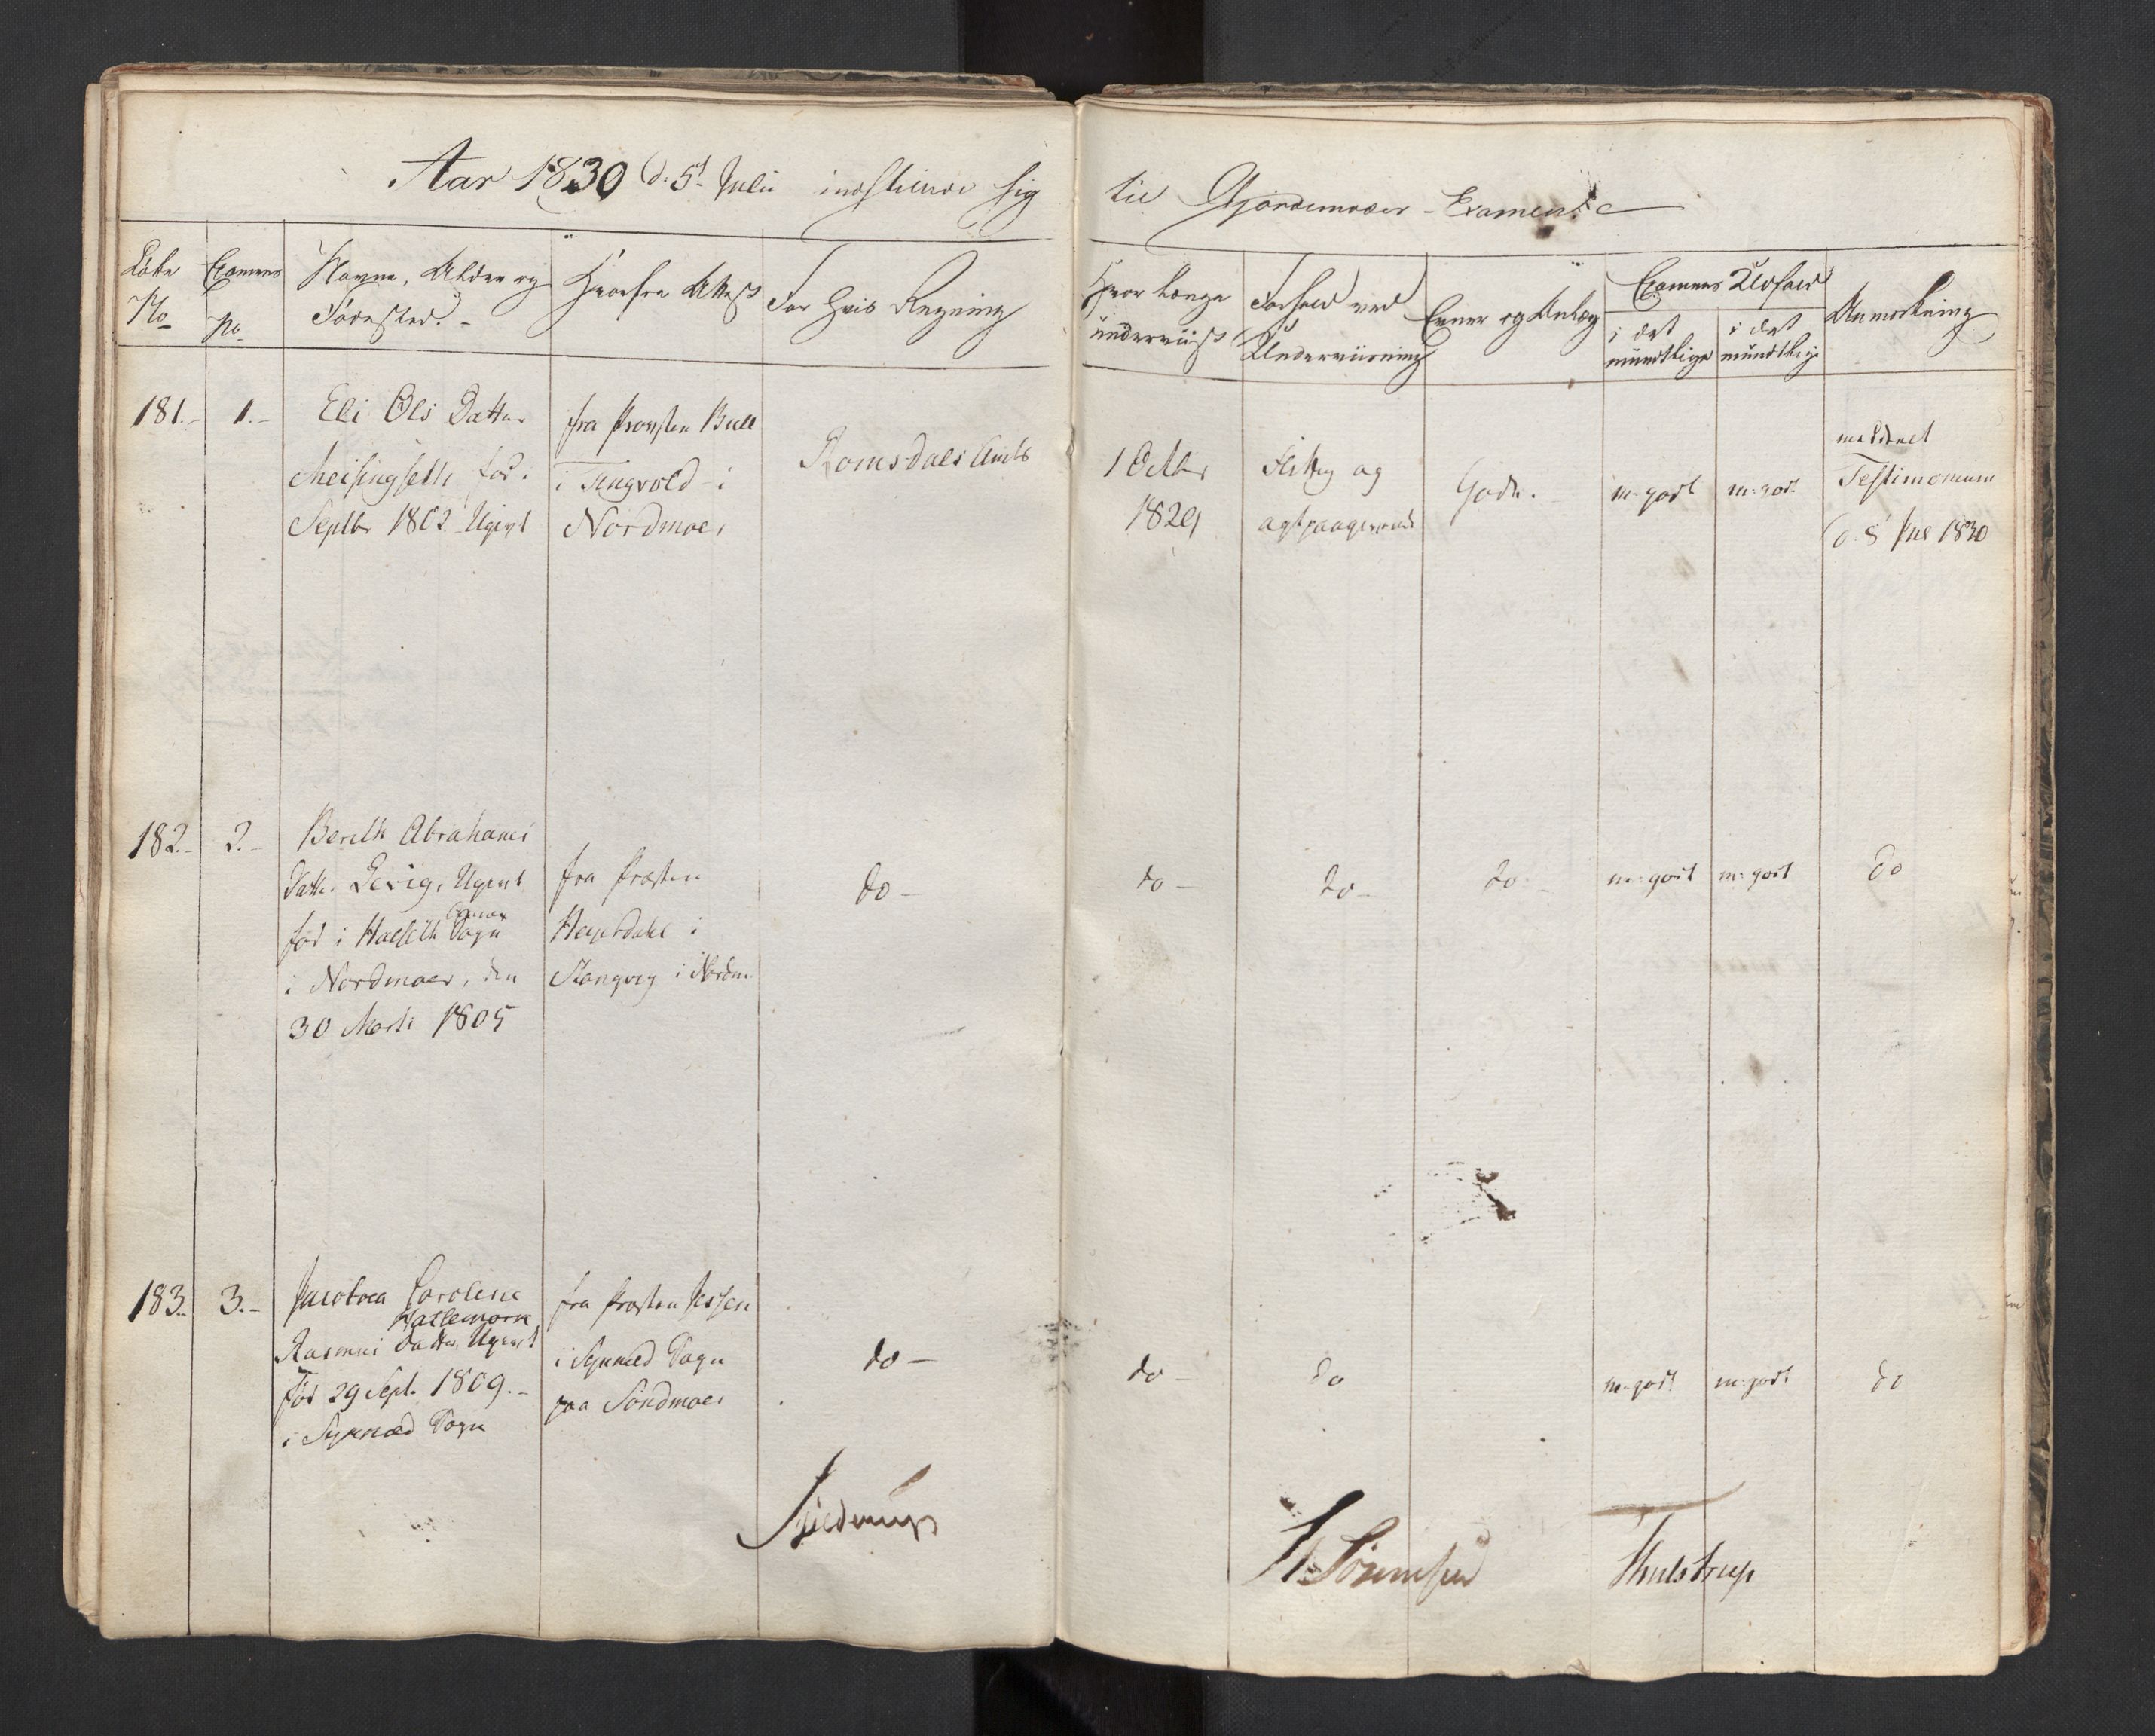 Aar 1830 d. 5t Julii indstillede sig til Gjordemoder-Examen
Löbe No
Examens No
Navne, Alder og Födested.
Hvorfra Attest
For hvis Regning
Hvor længe underviist
Forhold ved Underviisning
Evner og Anlæg
Examens Udfald
i det mundtlige
i det mundtlige
Anmærkning
181.
1.
Eli Ols Datter
Meisingseth föd.
Septbr 1802 Ugivt
fra Provsten Bull
i Tingvold i
Nordmoer
Romsdals Amts
1 Octbr
1829
Flittig og
agtpaagivende
Gode.
m. godt
m. godt
meddeelt
Testimonium
d. 8 Jul 1830
182.
2.
Berith Abrahams
Datter Ugivt
föd i Halseth Sogn
i Nordmoer, den
30 Marti 1805
fra Præsten
i
Stangvig i Nordm.
do
do
do
do
m. godt
m. godt
do
183.
3.
Jacobæa Carolina
Rasmus Datter Ugivt
Föd 29 Sept. 1809.
i Sogn
fra Præsten Jessen
i Sogn
paa Söndmoer
do
do
do
m. godt
m. godt
do
Sörenssen
Thulstrup